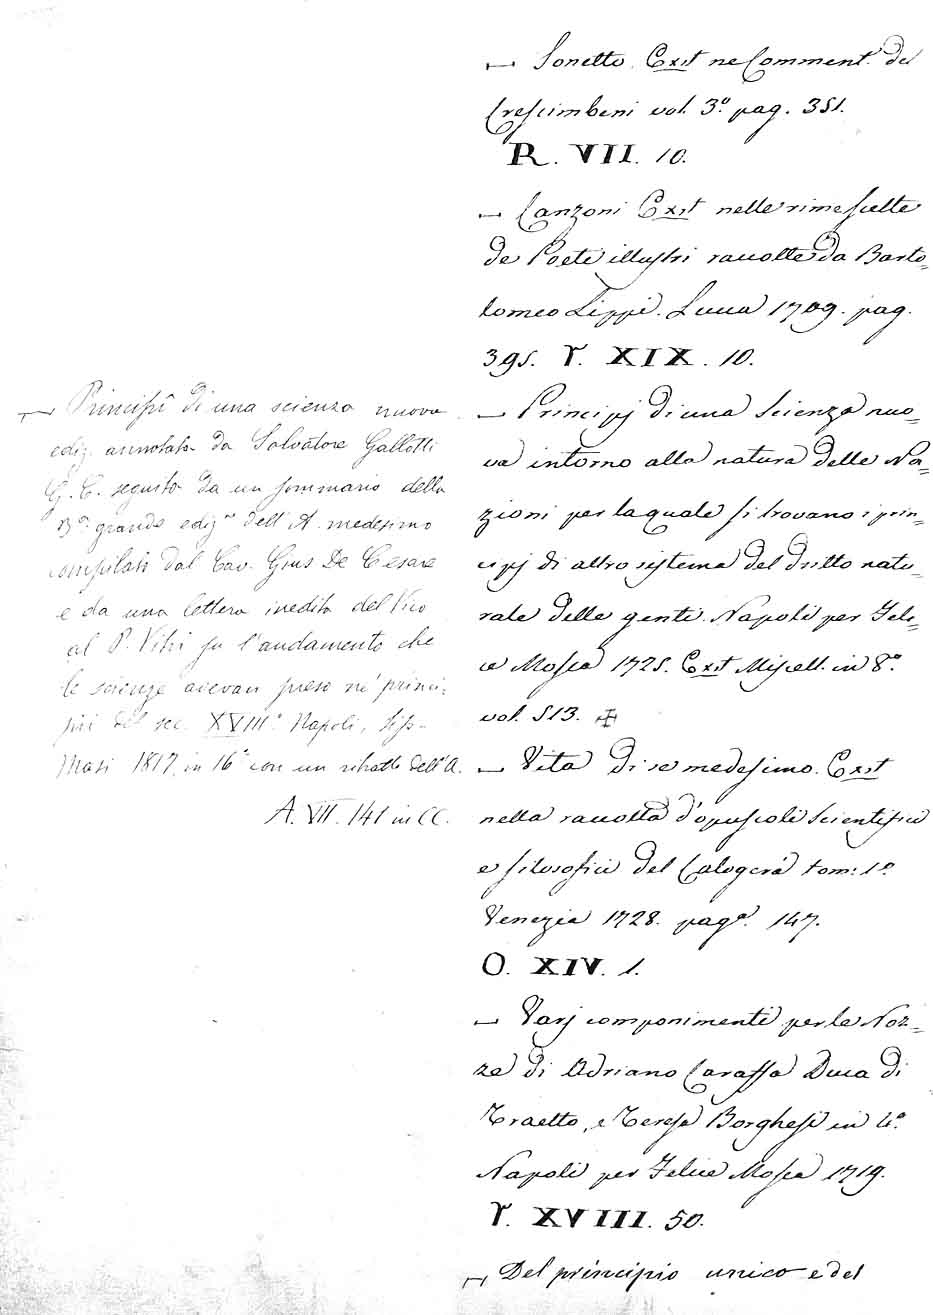 — Sonetto. Exit ne Comment. del
Crescimbeni vol. 3.º pag. 351.
R. VII. 10.
— Canzoni Exit nelle rime scelte
de Poeti illustri raccolte da Barto=
lomeo Lippi. Lucca 1709. pag.
395. Y. XIX. 10.
— Principj di una Scienza nuo=
va intorno alla natura delle Na=
zioni per la quale si trovano i prin=
cipj di altro sistema del dritto natu=
rale delle genti. Napoli per Feli=
ce Mosca 1725. Exit Miscell. in 8.º
vol. 513. ✠
— Vita di se medesimo. Exit
nella raccolta d'opuscoli Scientifici
e filosofici del Calogerà tom: 1.º
Venezia 1728. pag.ª 147.
O. XIV. 1.
— Varj componimenti per le Noz=
ze di Adriano Caraffa Duca di
Traetto, e Teresa Borghesi in 4.º
Napoli per Felice Mosca 1719.
Y. XVIII. 50.
— Del principio unico e del
— Principî di una scienza nuova
ediz. annotata da Salvatore Gallotti
G. C. seguita da un sommario della
3.ª grande ediz.ne dell'A. medesimo
compilato dal Cav. Gius. De Cesare
e da una lettera inedita del Vico
al P. Vitri su l'andamento che
le scienze avevan preso ne' princi-
pii del sec. XVIII.º Napoli,
Masi 1817, in 16.º con un ritratto dell'A.
A. VII. 141 in CC.